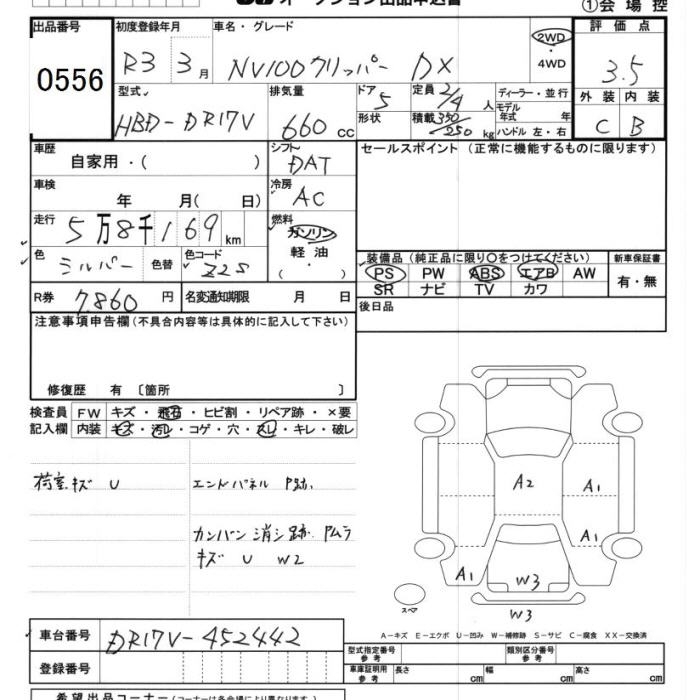 ①会場控
出品番号 初度登録年月 車名・グレード 評価点
0556 R3 3月 NV100クリッパー DX 2WD・4WD 3.5
型式 排気量 ドア 定員 ディーラー・並行 外装 内装
HBD-DR17V 660cc 5 2/4人 モデル年式 年 C B
形状 積載 350/250kg ハンドル 左・右
車歴 シフト セールスポイント (正常に機能するものに限ります)
自家用・( ) DAT
車検 年 月( 日) 冷房 AC
走行 5万8千169km 燃料 ガソリン
軽油
・( )
色 シルバー 色替 色コード Z2S
装備品(純正品に限り○をつけてください) 新車保証書
PS PW ABS エアB AW 有・無
SR ナビ TV カワ
R券 7,860円 名変通知期限 月 日 後日品
注意事項申告欄(不具合内容等は具体的に記入して下さい)
修復歴 有 〔箇所 〕
検査員 FW キズ・飛石・ヒビ割・リペア跡・×要
記入欄 内装 キズ・汚レ・コゲ・穴・スレ・キレ・破レ
荷室キズ U エンドパネル P跡.
カンバン消シ跡 Pムラ
キズ U W2
A2 A1
A1
A1 W3
スペア W3
A-キズ E-エクボ U-凹み W-補修跡 S-サビ C-腐食 XX-交換済
車台番号 DR17V-452442
型式指定番号 参考 類別区分番号 参考
登録番号 車庫証明用 参考 長さ cm 幅 cm 高さ cm
希望出品コーナー(コーナーは各会場により異なります。)